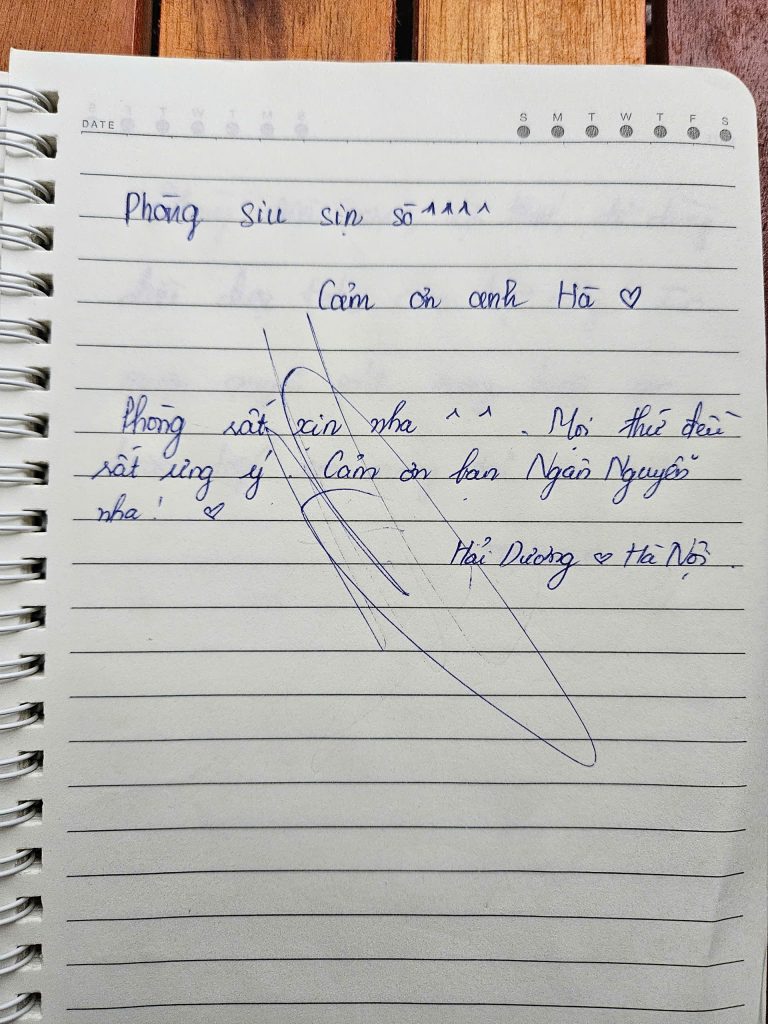 DATE
S M T W T F S
Phòng siu sịn sò ^^^^
Cảm ơn anh Hà ♡
Phòng rất xịn nha ^ ^ . Mọi thứ đều
rất ưng ý . Cảm ơn bạn Ngân Nguyễn
nha! ♡
Hải Dương ♡ Hà Nội .